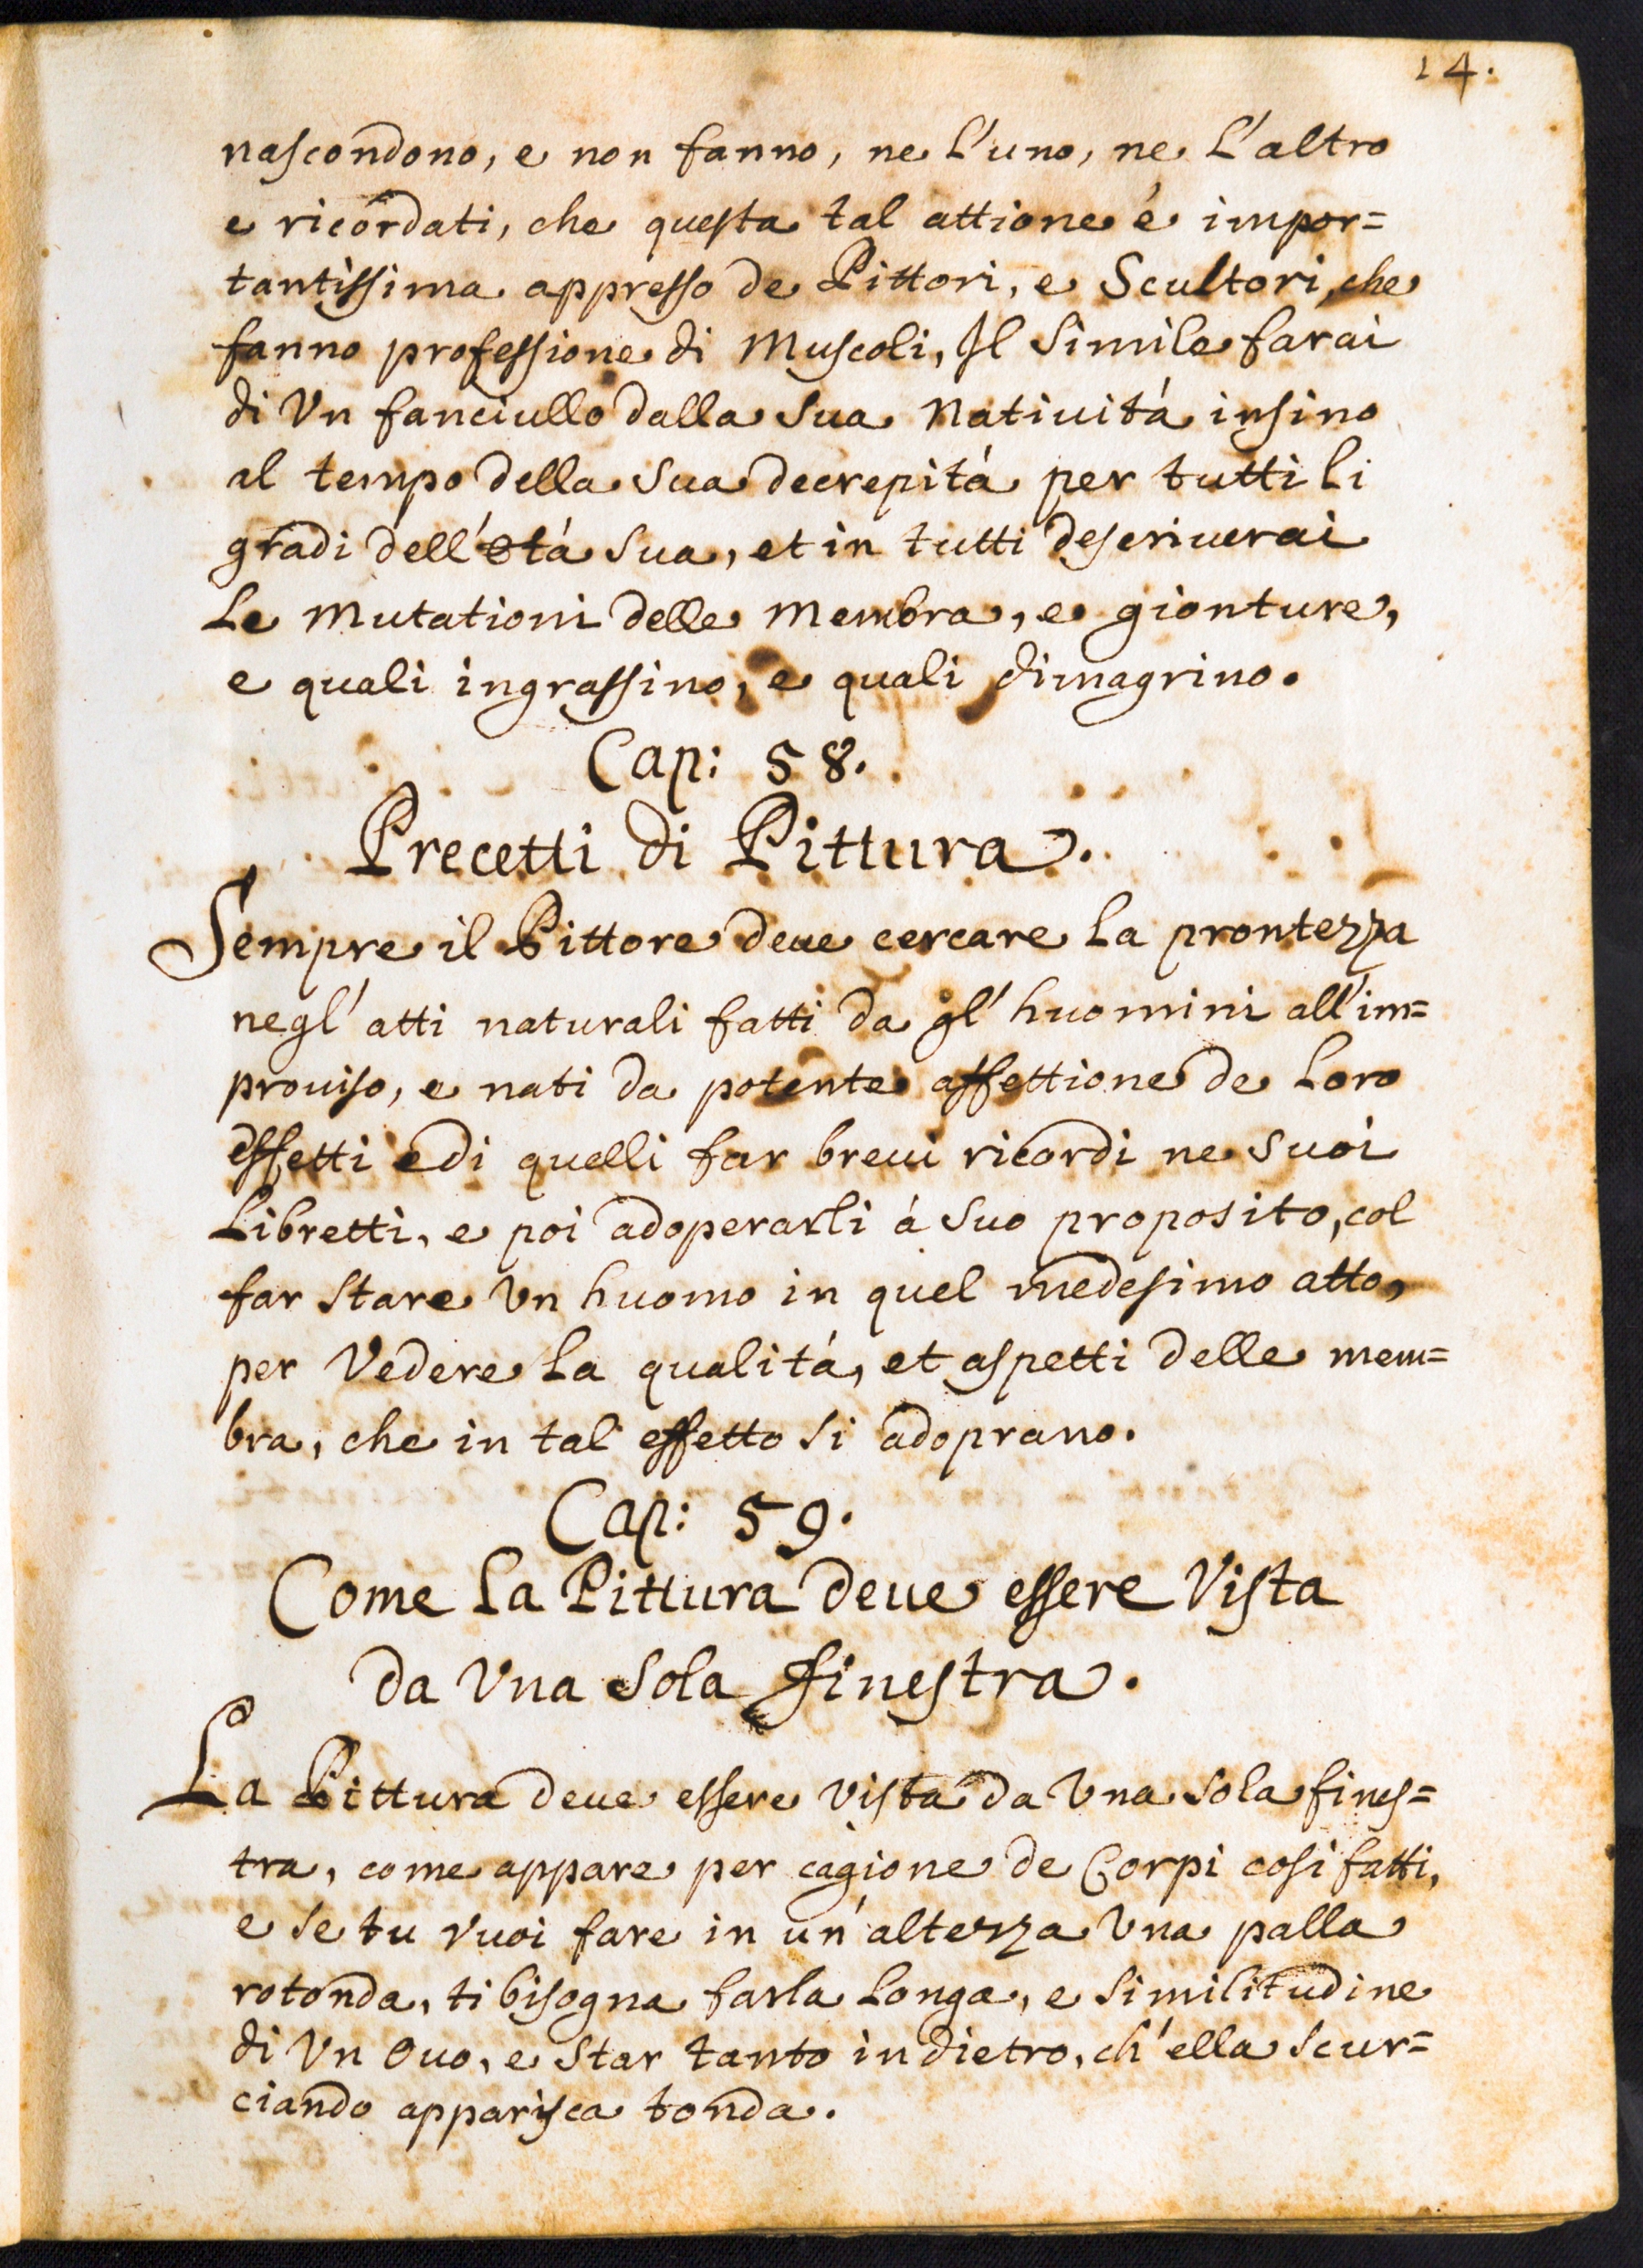 14.
nascondono, e non fanno, ne l'uno, ne l'altro
e ricordati, che questa tal attione é impor=
tantissima appresso de Pittori, e Scultori, che
fanno professione di Muscoli, Il Simile farai
di Vn fanciullo dalla Sua Natiuitá insino
al tempo della Sua decrepitá per tutti li
gradi dell'etá Sua, et in tutti descriuerai
Le Mutationi delle Membra, e gionture,
e quali ingrassino, e quali dimagrino.
Cap: 58.
Precetti di Pittura.
Sempre il Pittore deue cercare La prontezza
negl'atti naturali fatti da gl'huomini all'im=
prouiso, e nati da potente affettione de Loro
effetti e di quelli far breui ricordi ne Suoi
Libretti, e poi adoperarli á Suo proposito, col
far Stare Vn huomo in quel medesimo atto,
per Vedere La qualitá, et aspetti delle mem=
bra, che in tal effetto Si adoprano.
Cap: 59.
Come La Pittura deue essere Vista
da Vna Sola finestra.
La Pittura deue essere Vista da Vna Sola fines=
tra, come appare per cagione de Corpi cosi fatti,
e Se tu Vuoi fare in un'altezza Vna palla
rotonda, ti bisogna farla Longa, e Similitudine
di Vn Ouo, e Star tanto indietro, ch'ella Scur=
ciando apparisca tonda.